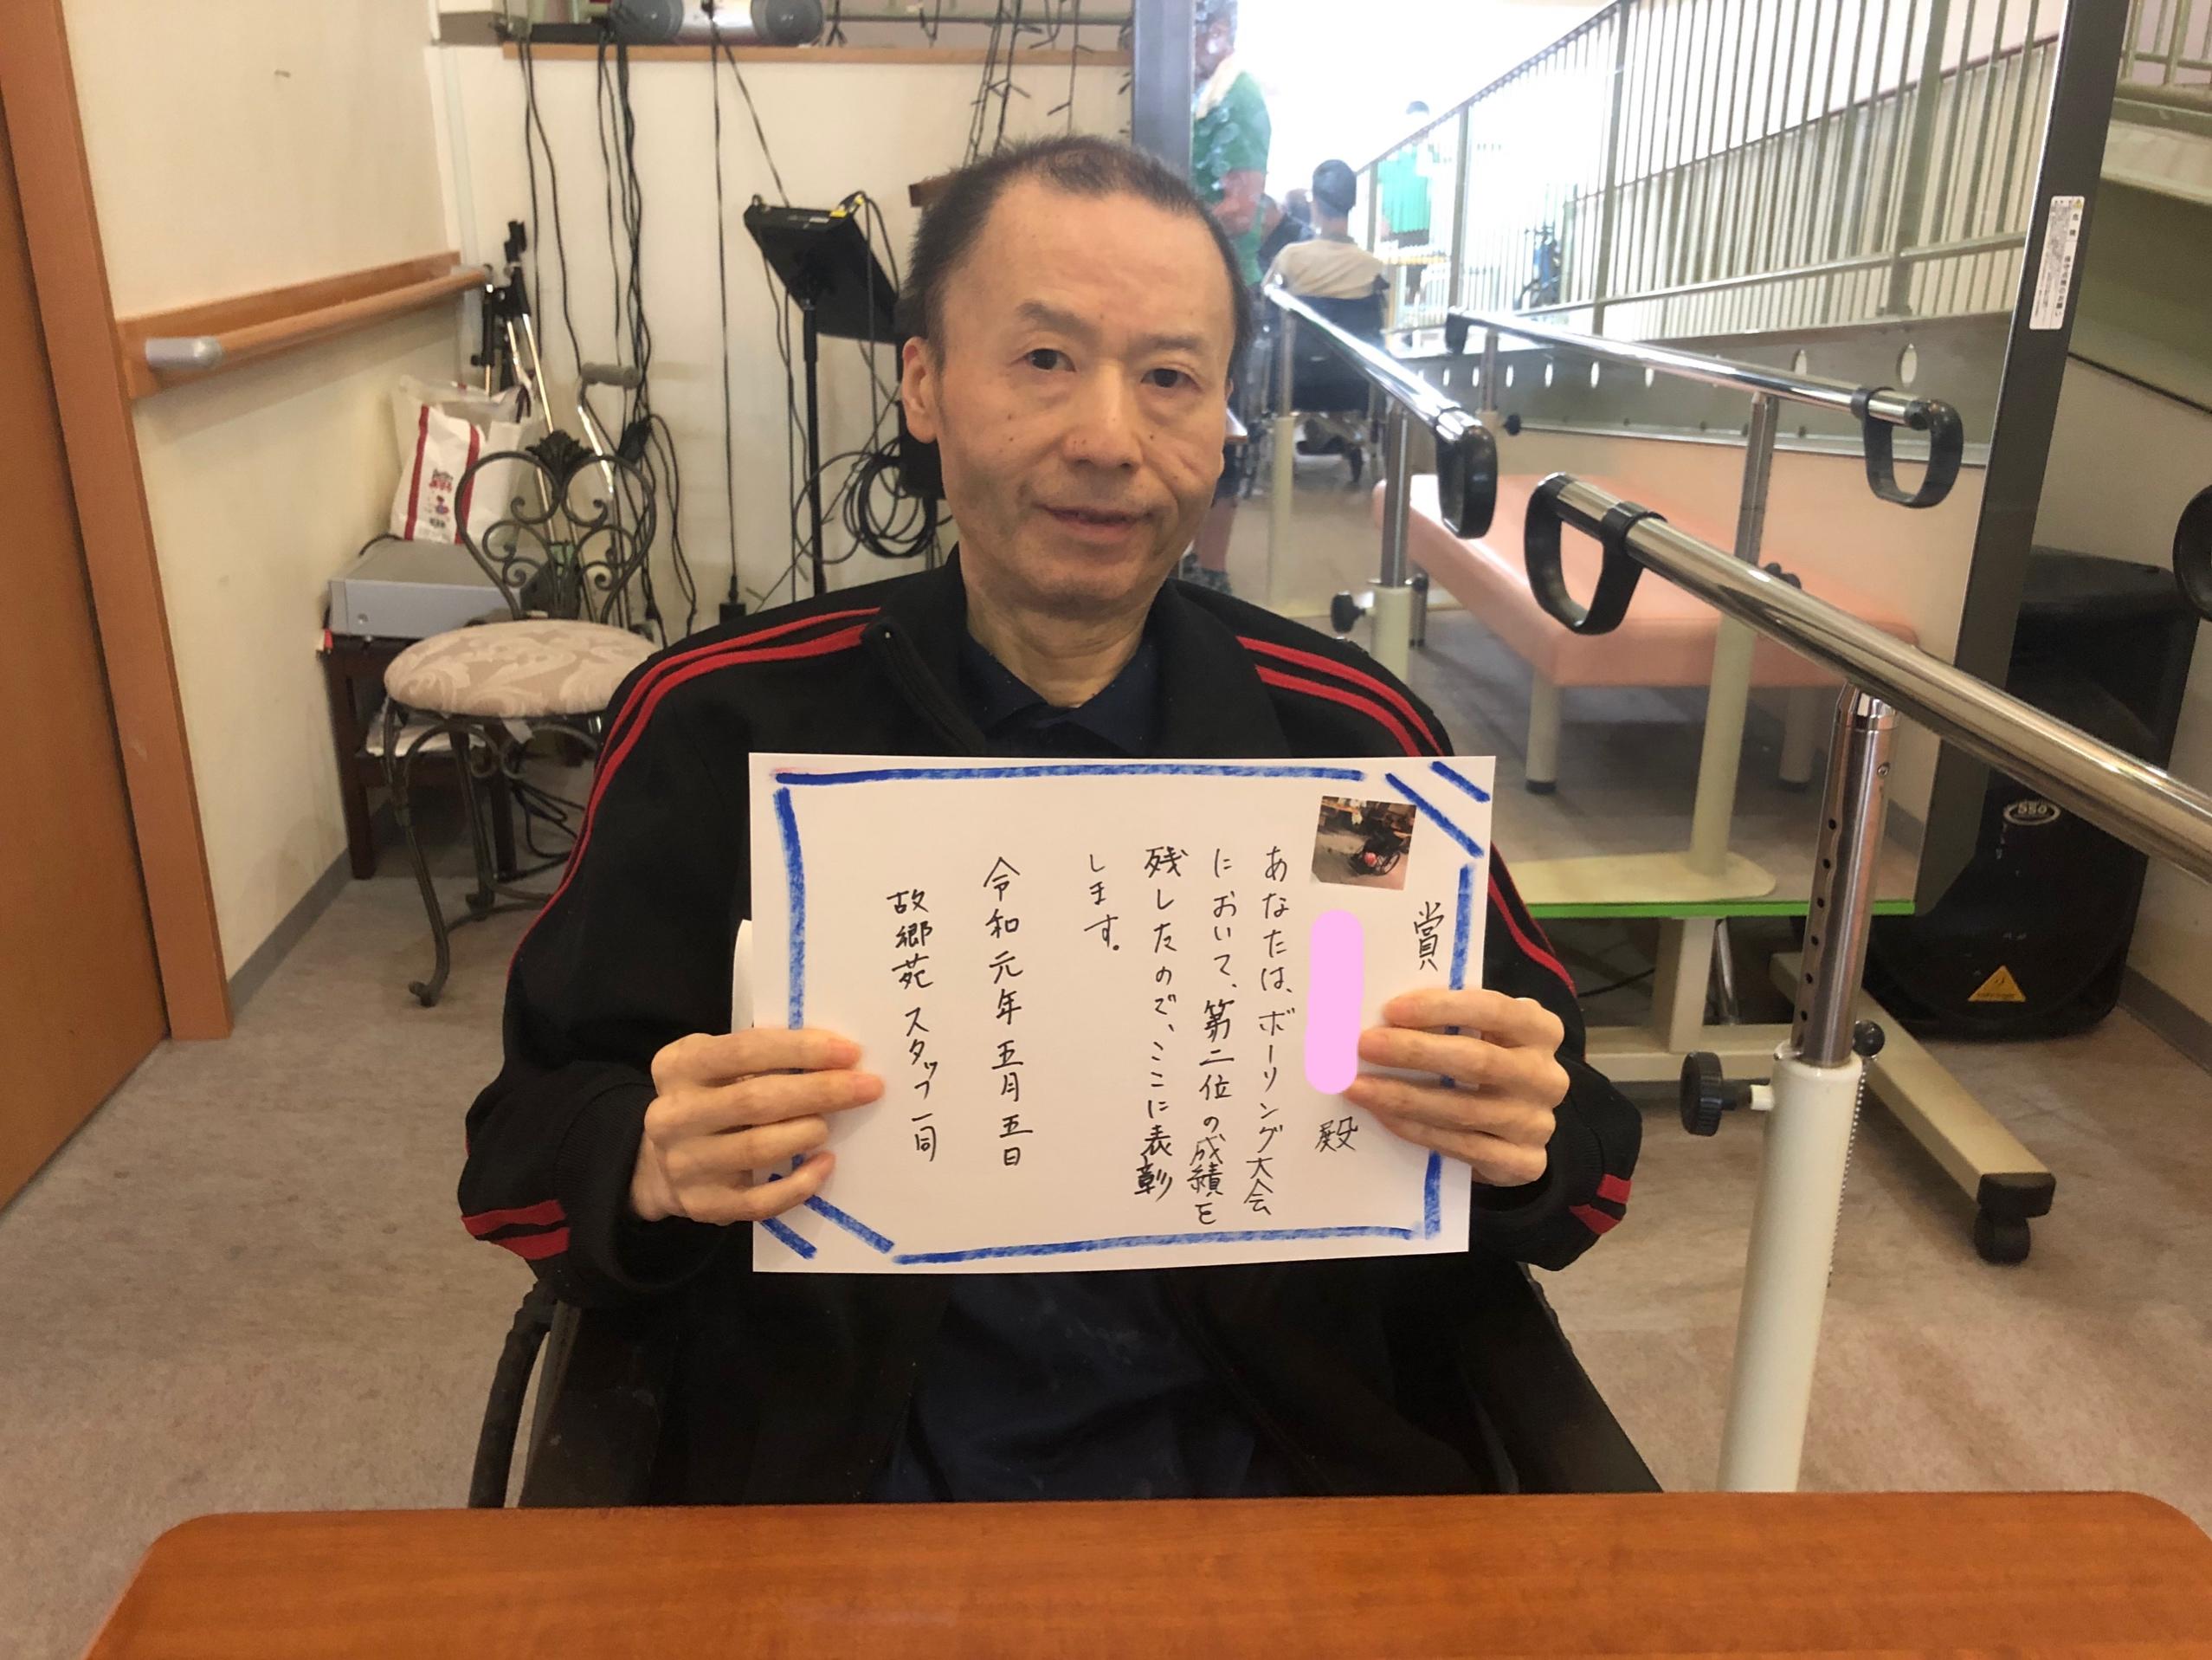 賞
殿
あなたは、ボーリング大会
において、第二位の成績を
残したので、ここに表彰
します。
令和元年五月五日
故郷苑スタッフ一同